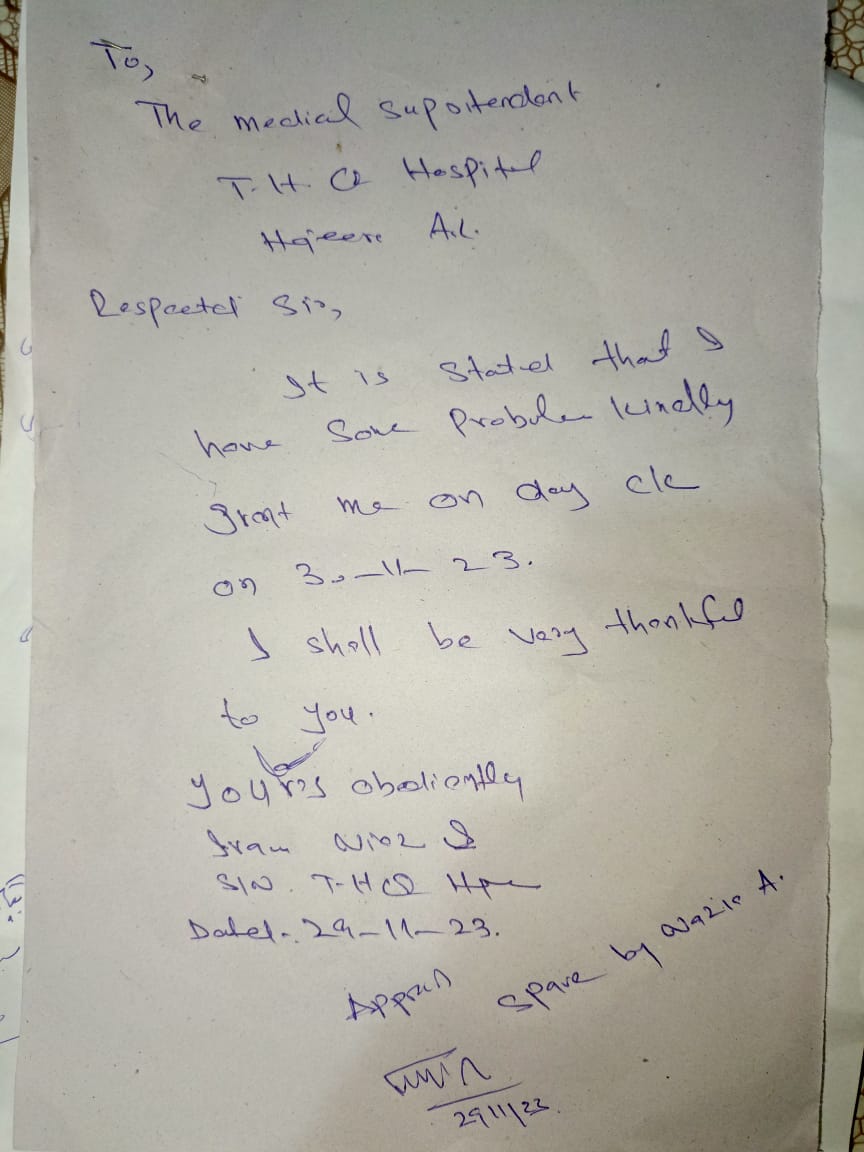 To,
The medical supoitendent
T.H.Q Hospital
Hajeera A.K.
Respected Sir,
It is Stated that I
have Some Probulem kindly
grant me on day c/c
on 30-11-23.
I shall be very thankful
to you.
yours obediently
Iram Niaz
S/N. T-HQ
Dated-. 29-11-23.
spare by Nazia A.
29/11/23